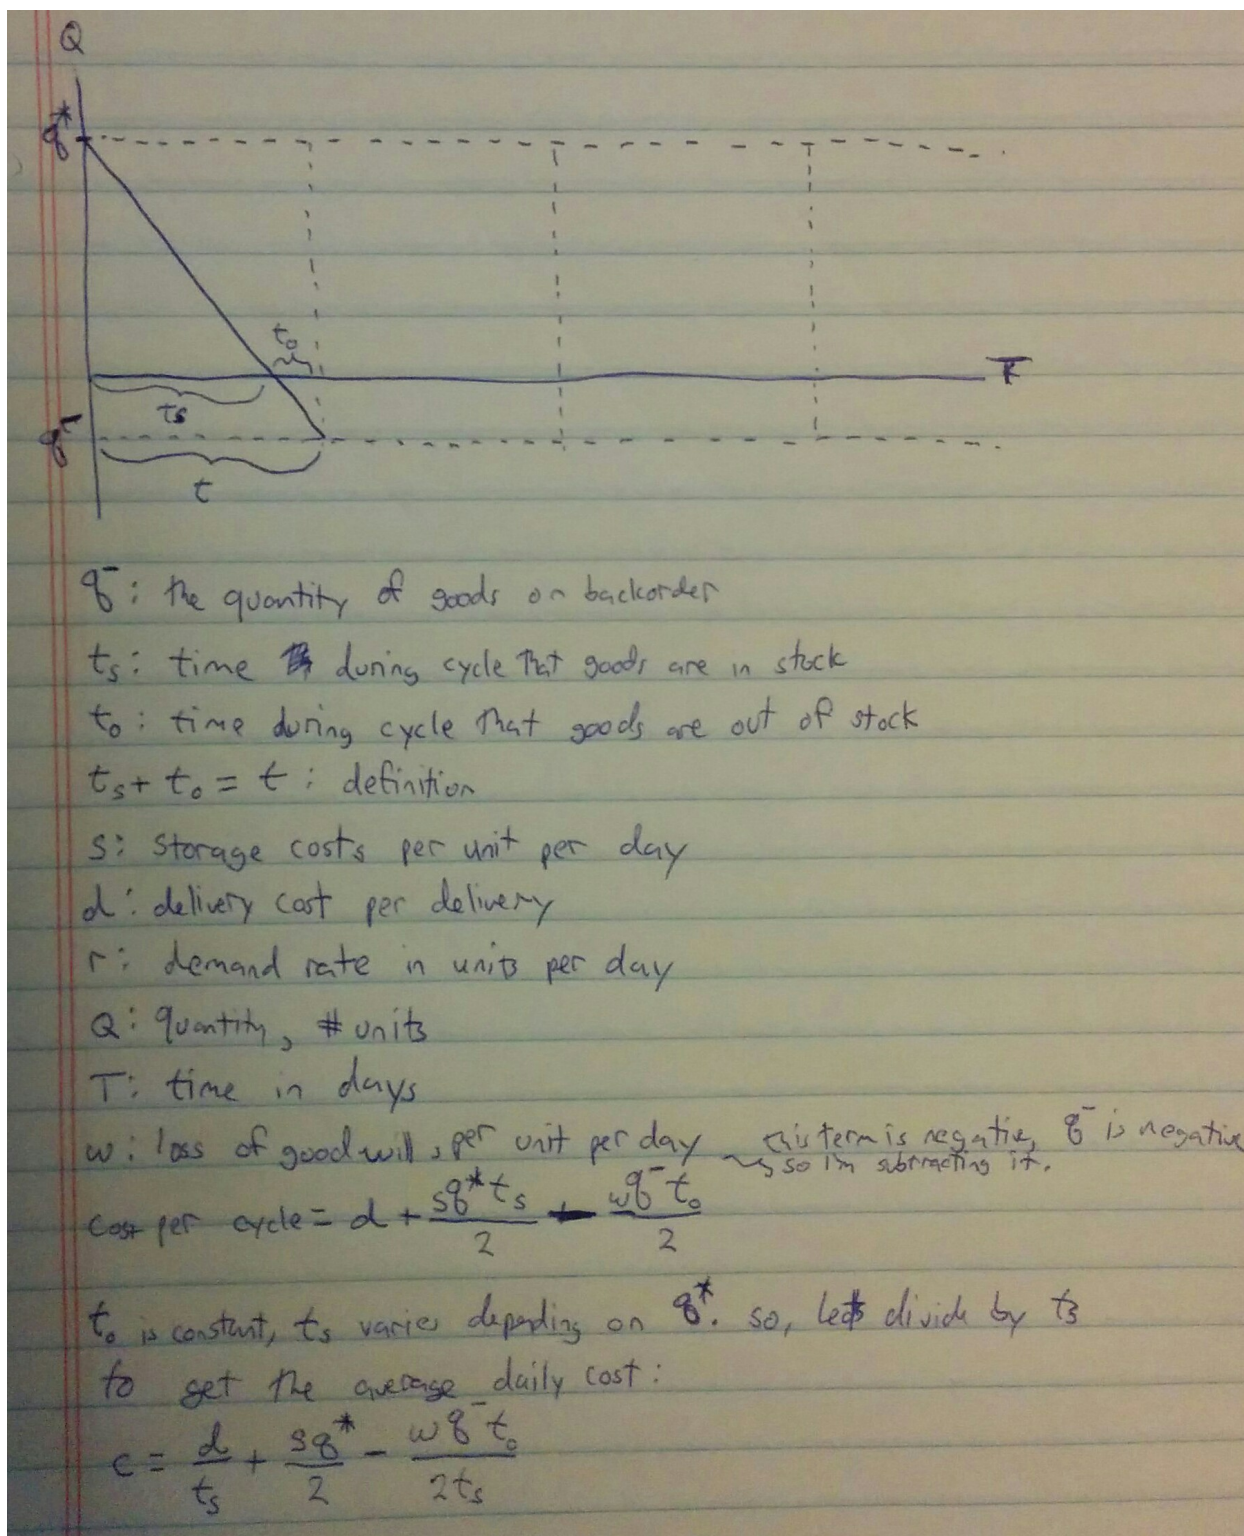 Q
q*
t₀
T
tₛ
q⁻
t
q⁻: the quantity of goods on backorder
tₛ: time during cycle that goods are in stock
t₀: time during cycle that goods are out of stock
tₛ + t₀ = t : definition
s: storage costs per unit per day
d: delivery cost per delivery
r: demand rate in units per day
Q: quantity, # units
T: time in days
w: loss of goodwill, per unit per day
this term is negative, q⁻ is negative
so I'm subtracting it.
cost per cycle = d + sq*tₛ/2 - wq⁻t₀/2
t₀ is constant, tₛ varies depending on q*. so, lets divide by tₛ
to get the average daily cost:
c = d/tₛ + sq*/2 - wq⁻t₀/2tₛ